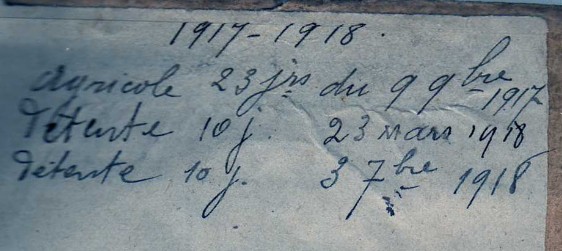 1917-1918.
Agricole 23 jrs du 9 9bre 1917
Détente 10 j. 23 mars 1918
Détente 10 j. 3 7bre 1918